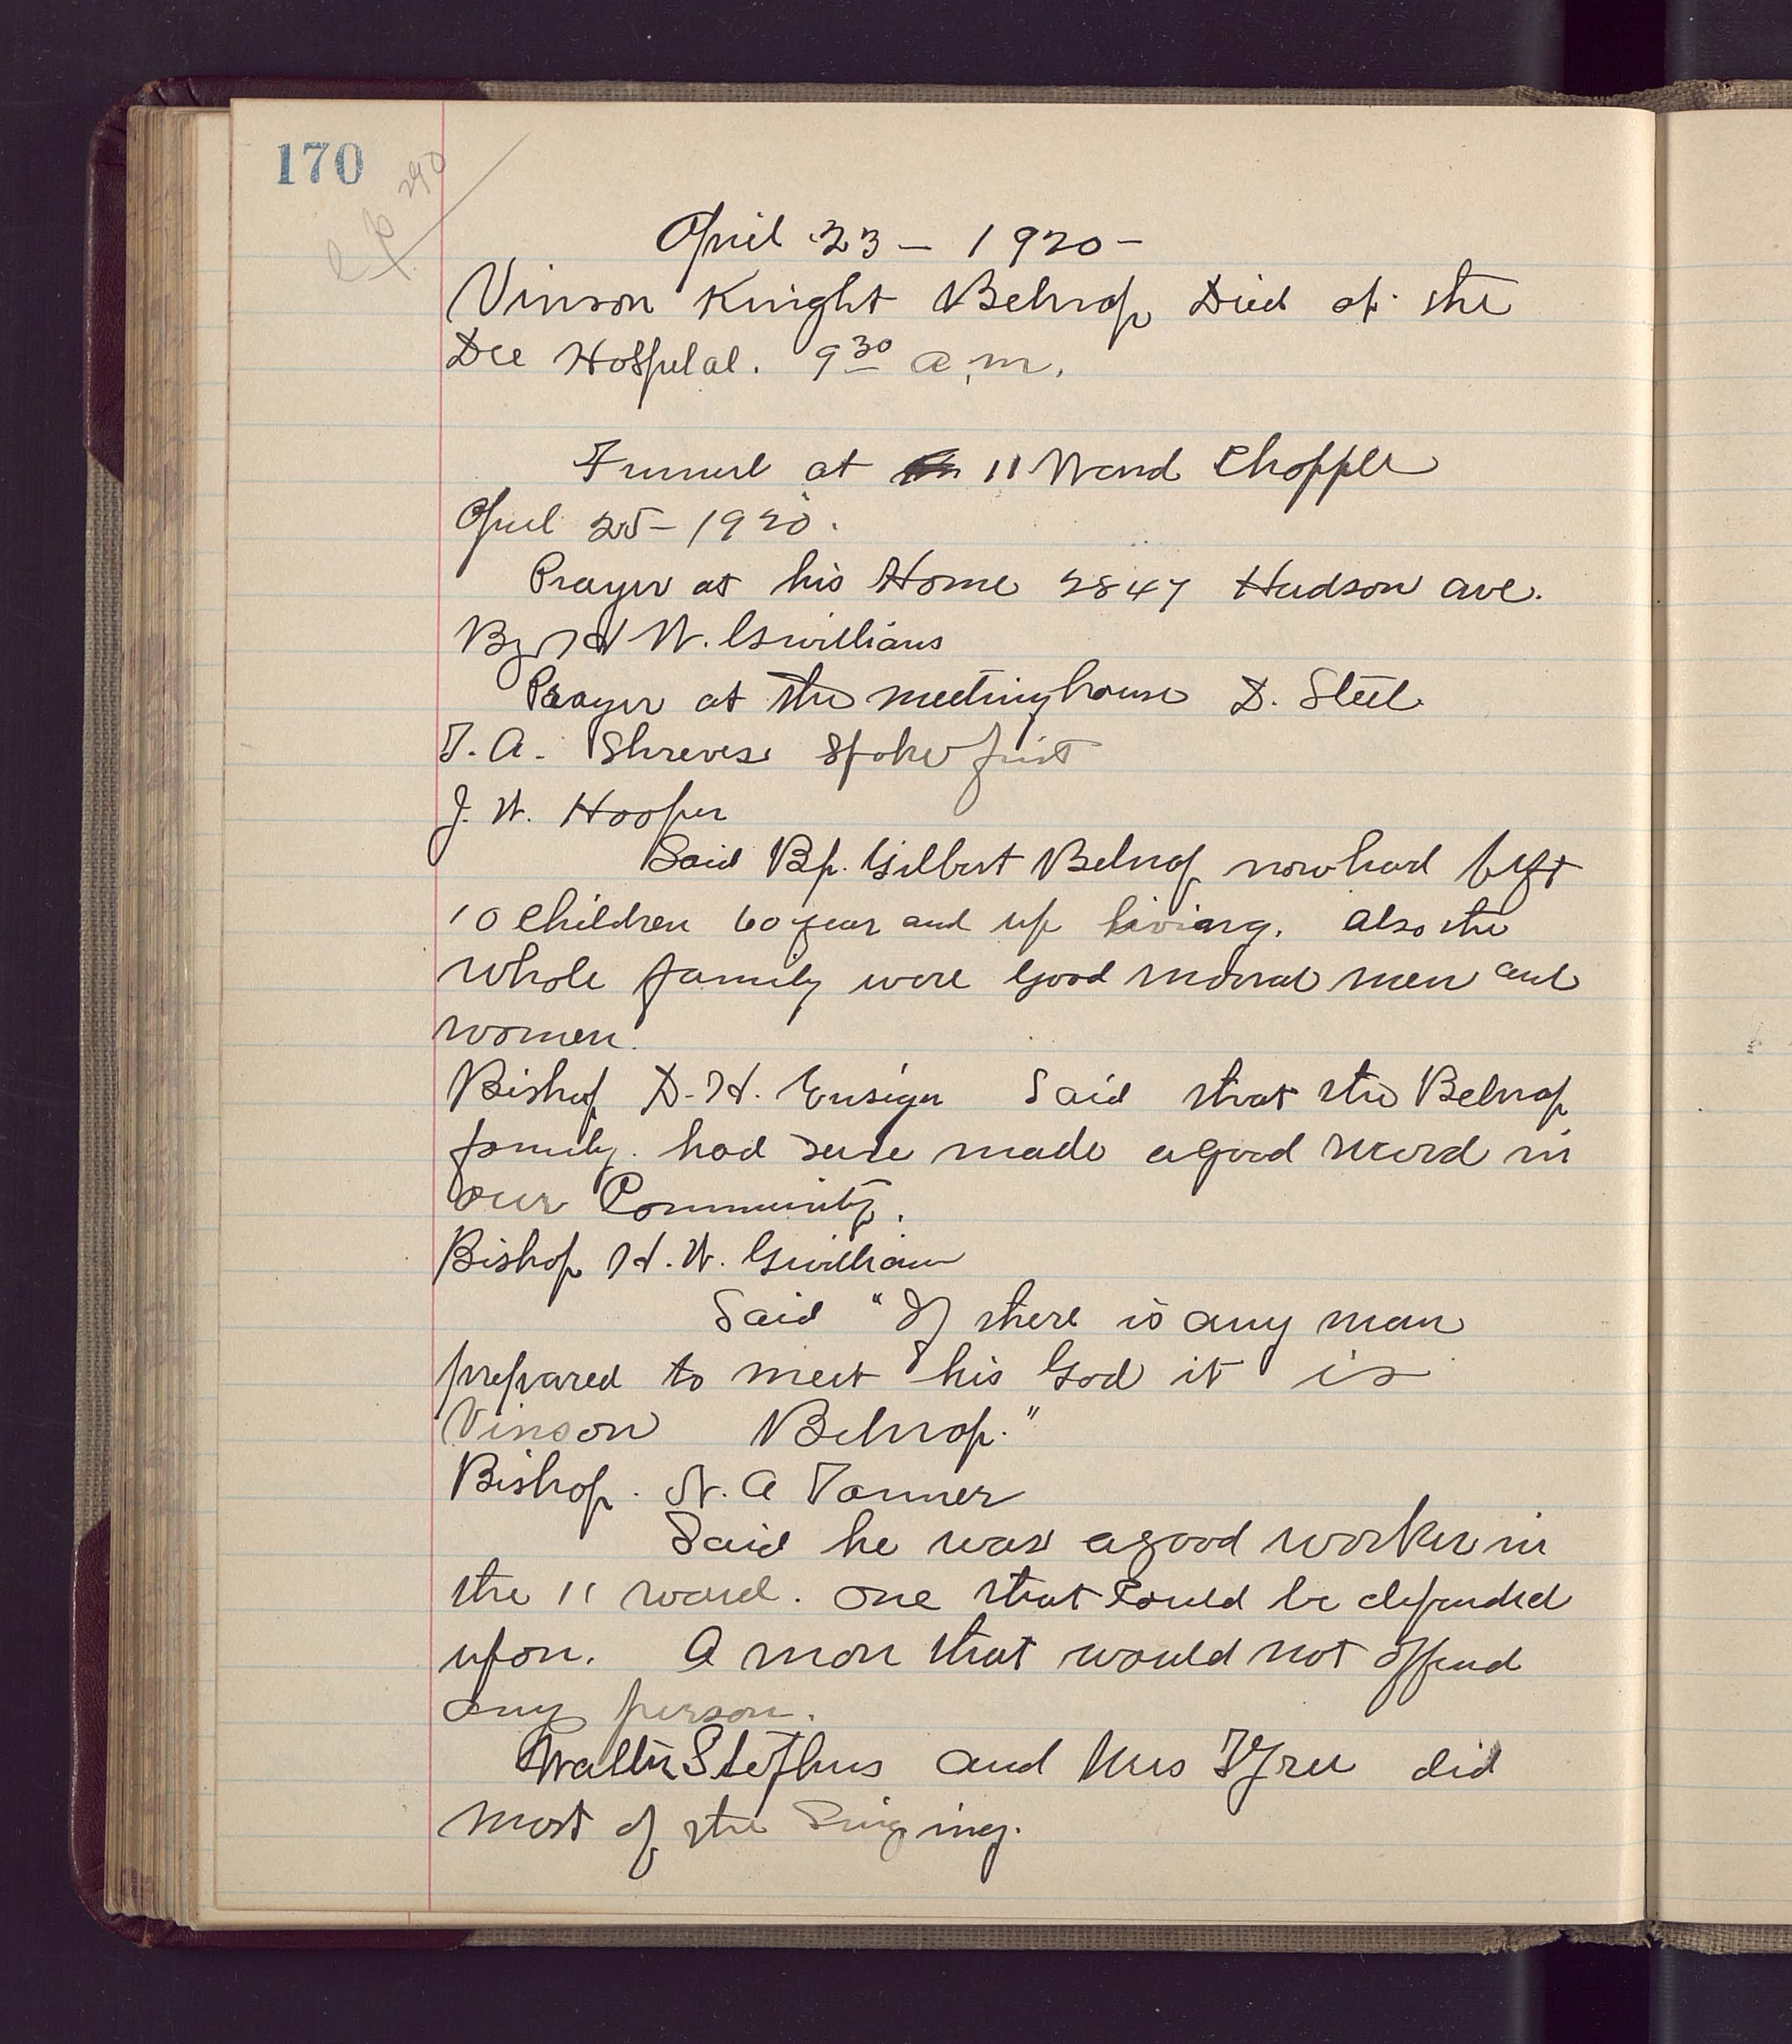 170
290
April 23 - 1920 -
Vinson Knight Belnap Died at the
Dee Hospital. 9 30 a.m.
Funerl at 11 Ward Chapple
April 25 - 1920.
Prayer at his Home 2847 Hudson ave.
By H W. Gwilliams
Prayer at the meetinghouse D. Steel
T. A. Shreves Spoke first
J. W. Hooper
Said Bp. Gilbert Belnap now had left
10 Children 60 year and up living. also the
whole family were good moral men and
women.
Bishop D. H. Ensign Said that the Belnap
family. had sure made a good record in
our Community.
Bishop H. W. Gwilliam
Said "If there is any man
prepared to meet his God it is
Vinson Belnap."
Bishop. N. A Tanner
Said he was a good worker in
the 11 ward. one that Could be depended
upon. A man that would not offend
any person.
Walter Stephens and Mrs did
most of the Singing.